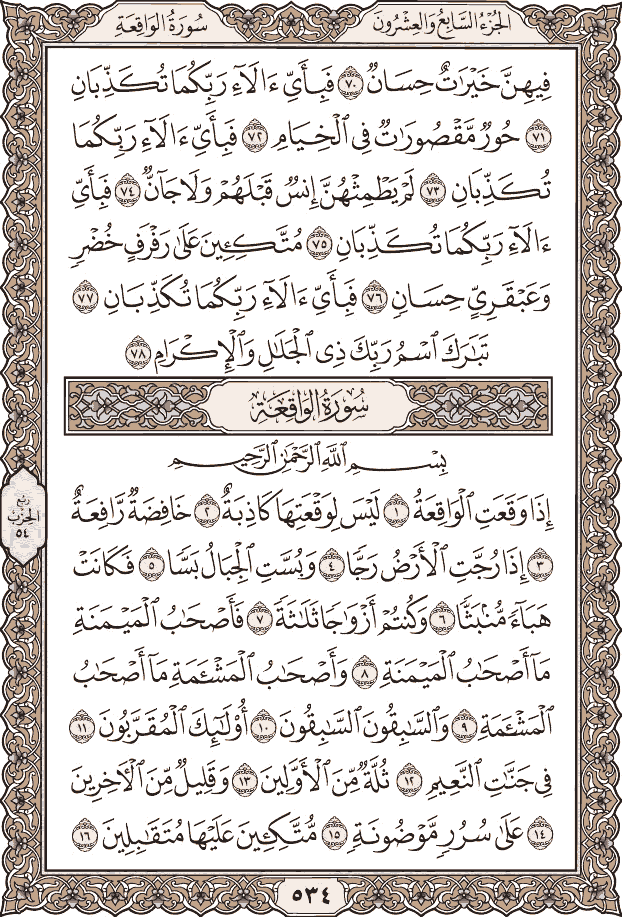 الجزء السابع والعشرون
سورة الواقعة
فِيهِنَّ خَيْرَٰتٌ حِسَانٌ ٧٠ فَبِأَيِّ ءَالَآءِ رَبِّكُمَا تُكَذِّبَانِ
٧١ حُورٌ مَّقْصُورَٰتٌ فِى ٱلْخِيَامِ ٧٢ فَبِأَيِّ ءَالَآءِ رَبِّكُمَا
تُكَذِّبَانِ ٧٣ لَمْ يَطْمِثْهُنَّ إِنسٌ قَبْلَهُمْ وَلَا جَآنٌّ ٧٤ فَبِأَيِّ
ءَالَآءِ رَبِّكُمَا تُكَذِّبَانِ ٧٥ مُتَّكِـِٔينَ عَلَىٰ رَفْرَفٍ خُضْرٍ
وَعَبْقَرِيٍّ حِسَانٍ ٧٦ فَبِأَيِّ ءَالَآءِ رَبِّكُمَا تُكَذِّبَانِ ٧٧
تَبَٰرَكَ ٱسْمُ رَبِّكَ ذِى ٱلْجَلَٰلِ وَٱلْإِكْرَامِ ٧٨
سُورَةُ الوَاقِعَةِ
بِسْمِ ٱللَّهِ ٱلرَّحْمَٰنِ ٱلرَّحِيمِ
إِذَا وَقَعَتِ ٱلْوَاقِعَةُ ١ لَيْسَ لِوَقْعَتِهَا كَاذِبَةٌ ٢ خَافِضَةٌ رَّافِعَةٌ
٣ إِذَا رُجَّتِ ٱلْأَرْضُ رَجًّا ٤ وَبُسَّتِ ٱلْجِبَالُ بَسًّا ٥ فَكَانَتْ
هَبَآءً مُّنۢبَثًّا ٦ وَكُنتُمْ أَزْوَٰجًا ثَلَٰثَةً ٧ فَأَصْحَٰبُ ٱلْمَيْمَنَةِ
مَآ أَصْحَٰبُ ٱلْمَيْمَنَةِ ٨ وَأَصْحَٰبُ ٱلْمَشْـَٔمَةِ مَآ أَصْحَٰبُ
ٱلْمَشْـَٔمَةِ ٩ وَٱلسَّٰبِقُونَ ٱلسَّٰبِقُونَ ١٠ أُو۟لَٰٓئِكَ ٱلْمُقَرَّبُونَ ١١
فِى جَنَّٰتِ ٱلنَّعِيمِ ١٢ ثُلَّةٌ مِّنَ ٱلْأَوَّلِينَ ١٣ وَقَلِيلٌ مِّنَ ٱلْءَاخِرِينَ
١٤ عَلَىٰ سُرُرٍ مَّوْضُونَةٍ ١٥ مُّتَّكِـِٔينَ عَلَيْهَا مُتَقَٰبِلِينَ ١٦
ربع
الحزب
٥٤
٥٣٤